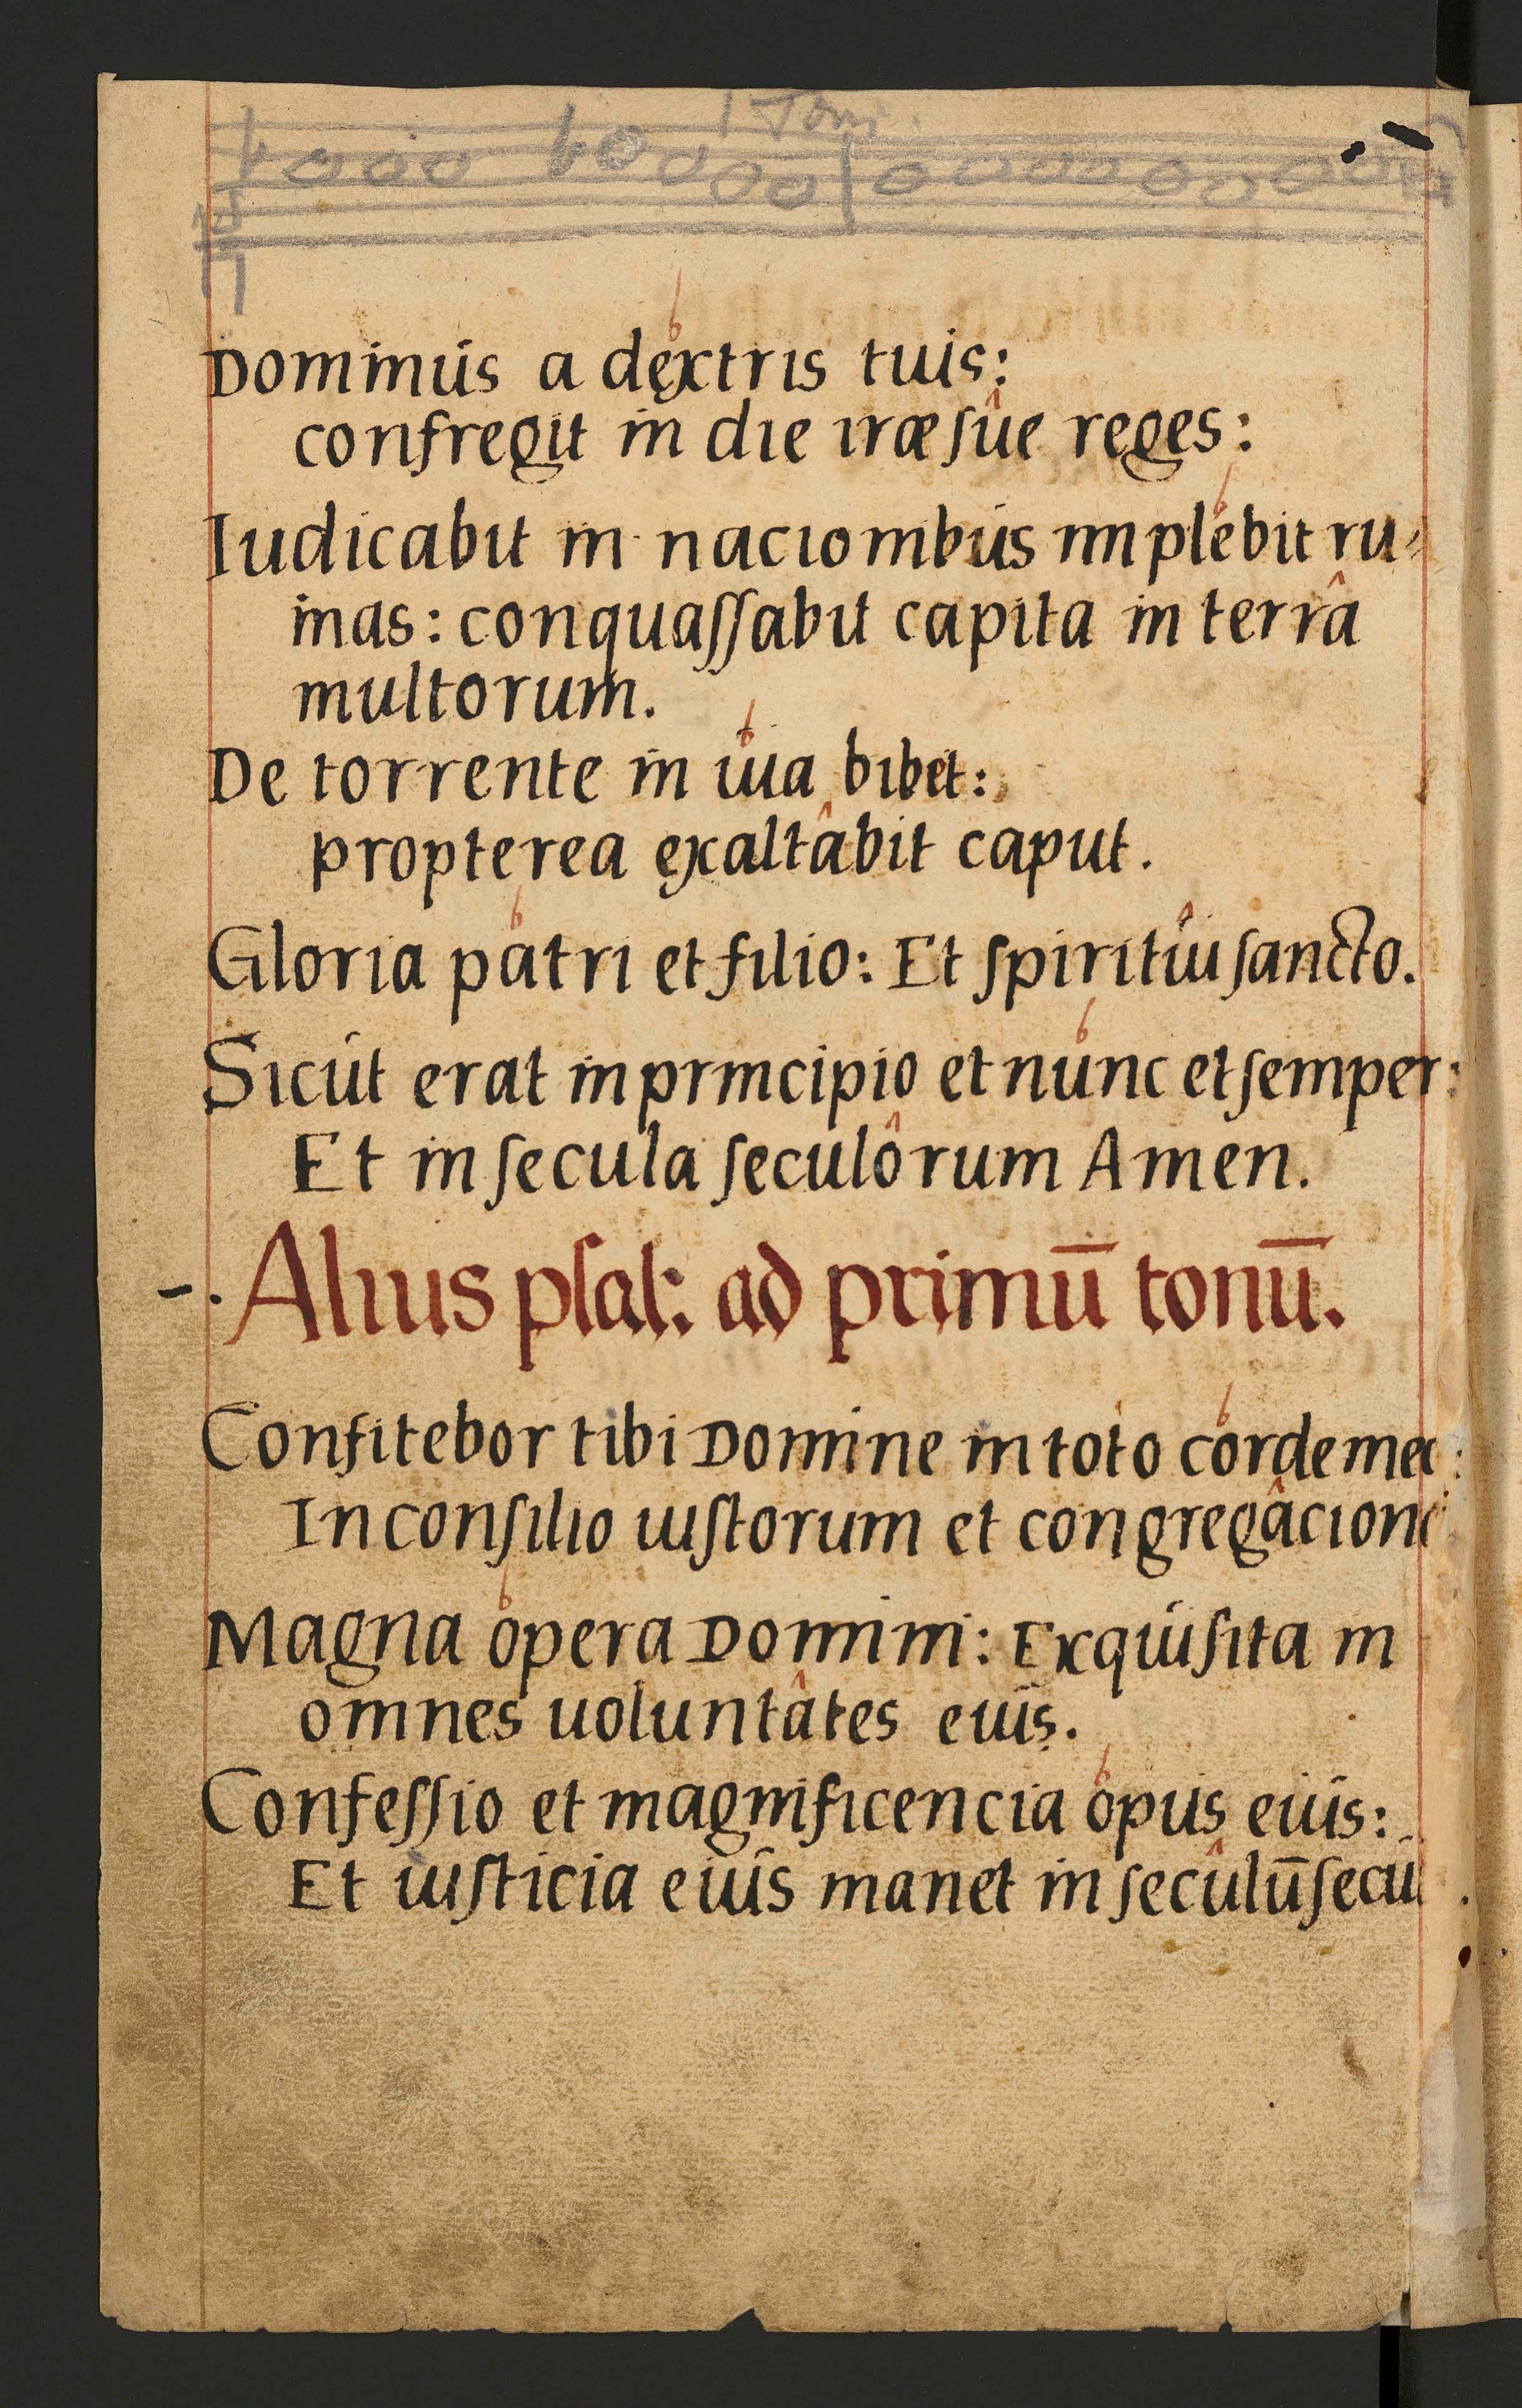 1 Toni
Dominus a dextris tuis:
confregit in die iræ sue reges:
Iudicabit in nacionibus implebit ru-
inas: conquaſſabit capita in terra
multorum.
De torrente in uia bibet:
propterea exaltabit caput.
Gloria patri et filio: Et ſpiritui ſancto.
Sicut erat in principio et nunc et ſemper:
Et in ſecula ſeculorum Amen.
Alius pſal: ad primū tonū.
Confitebor tibi Domine in toto corde me
In conſilio iuſtorum et congregacion
Magna opera Domini: Exquiſita in
omnes uoluntates eius.
Confeſſio et magnificencia opus eius:
Et iuſticia eius manet in ſeculū ſecu